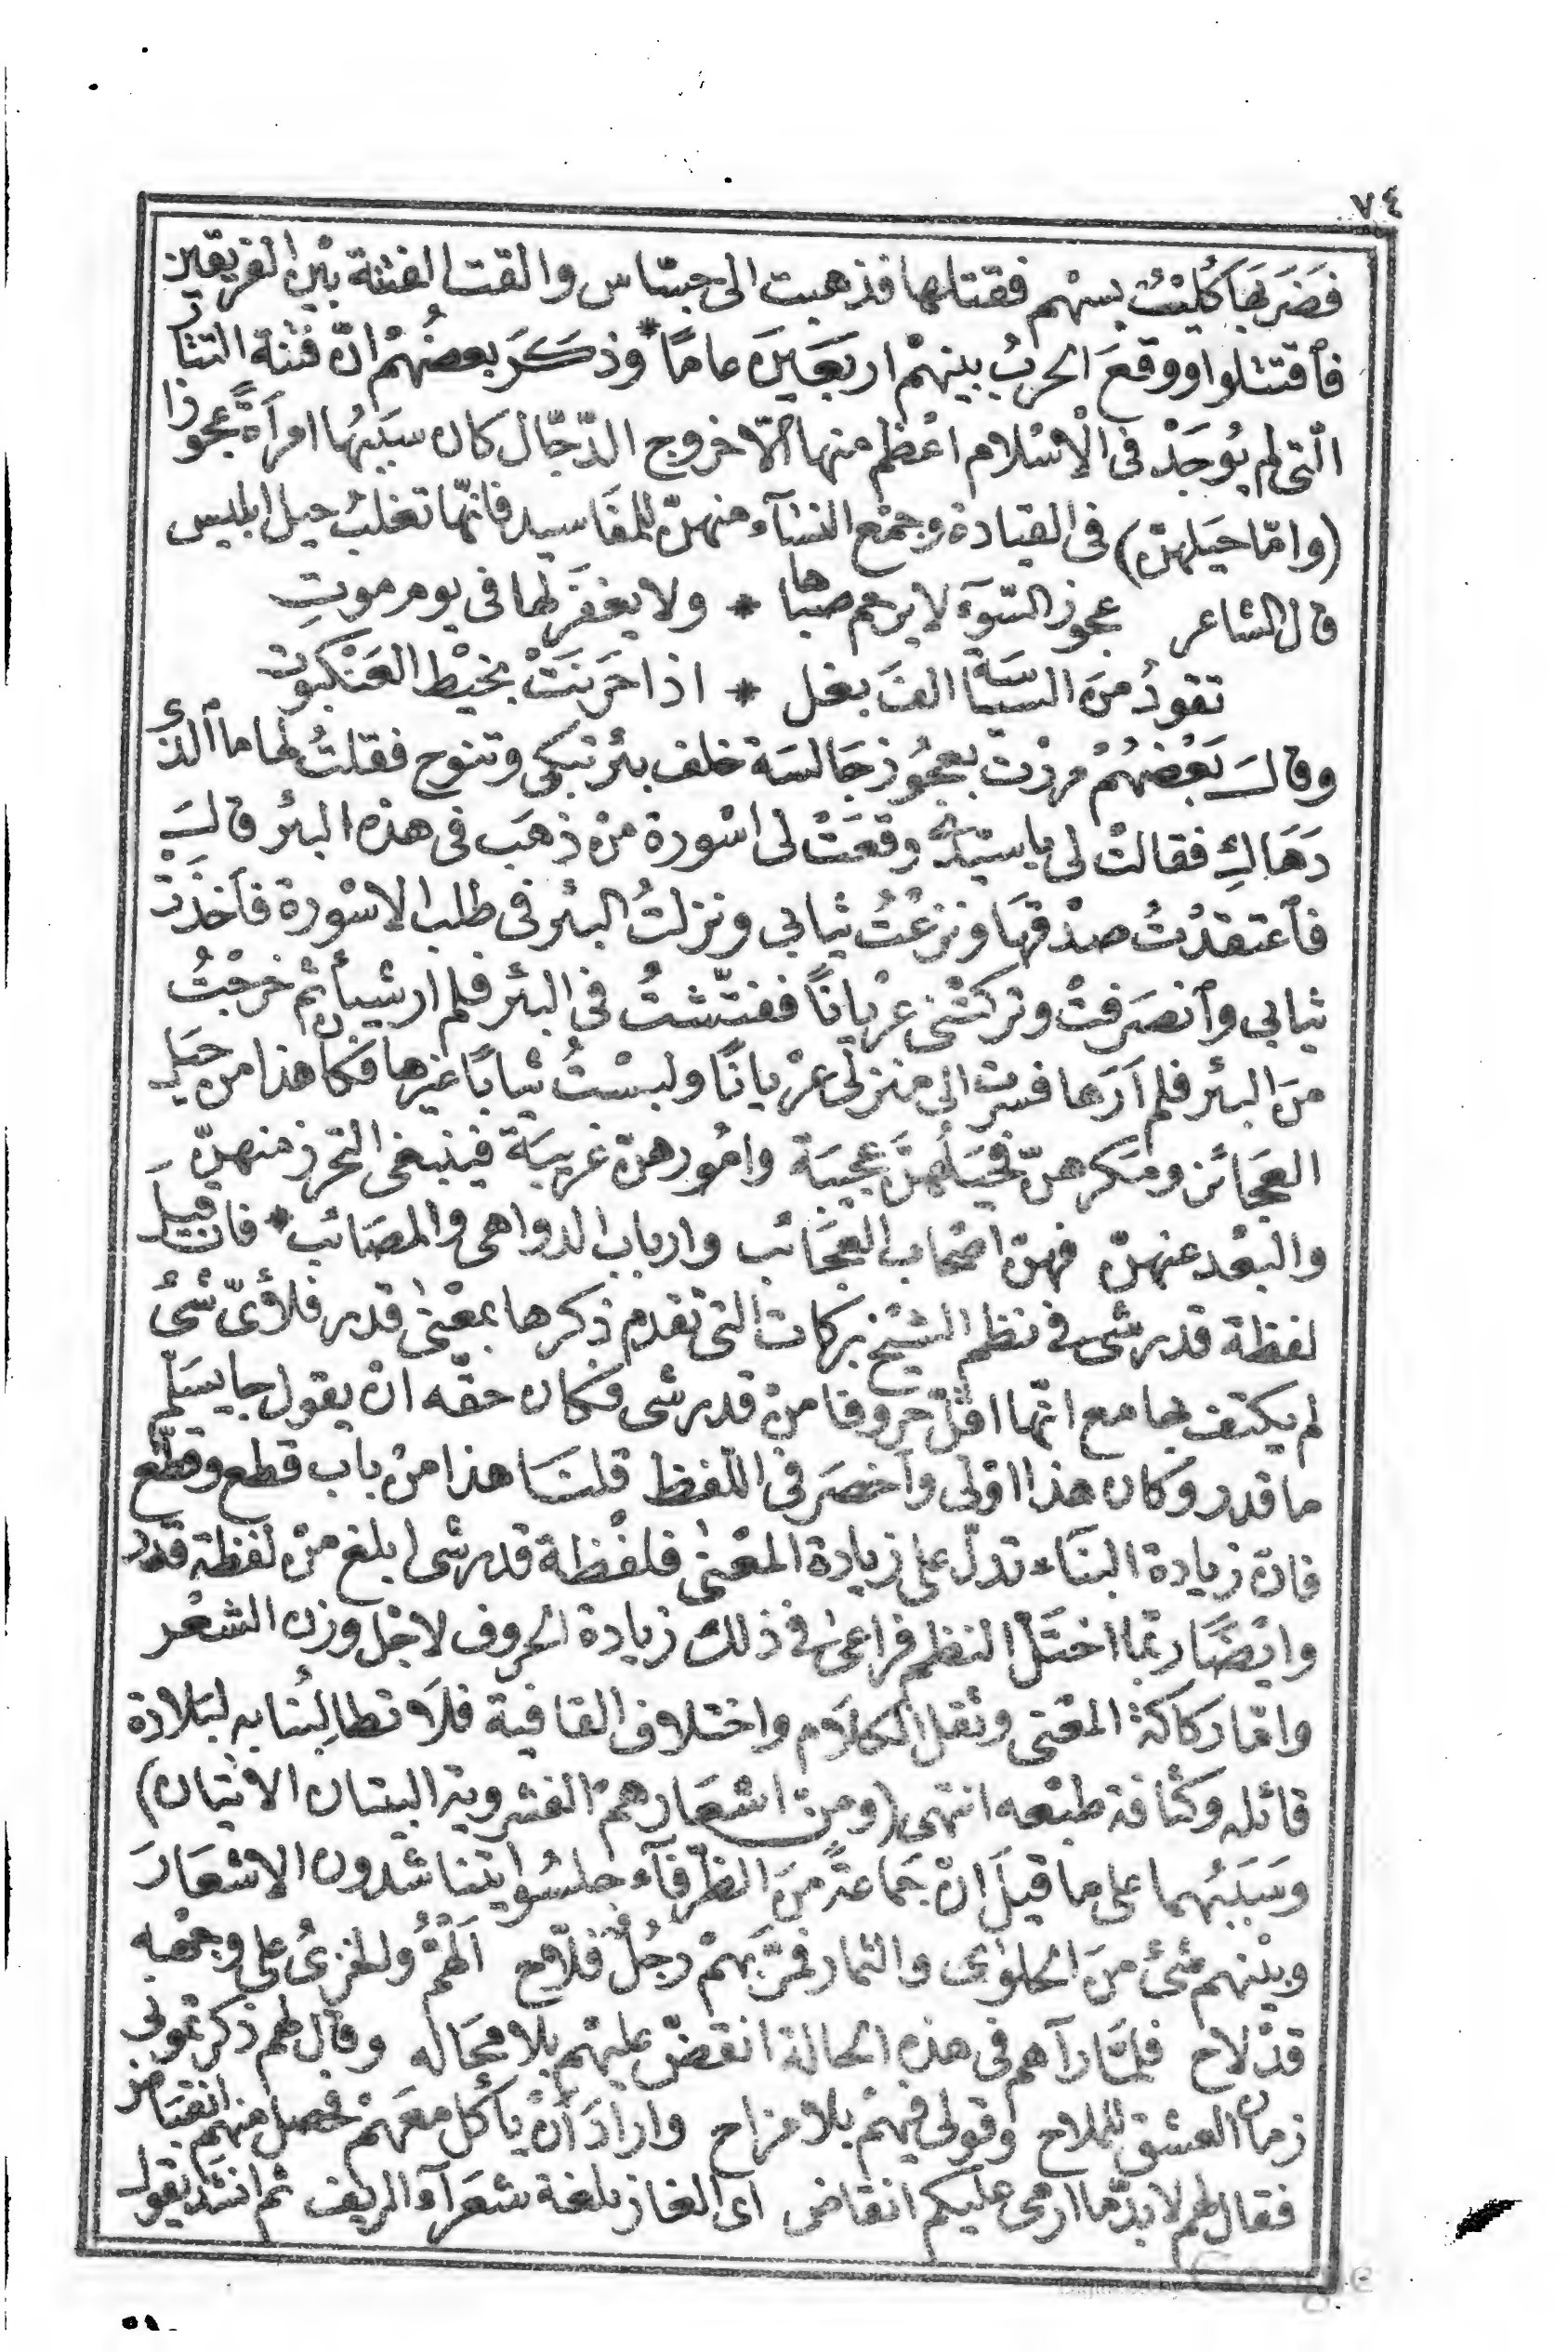 ٧٤
فَضَرَبَهَا كُلَيْبُ بسهْم فقتلها فذهبت الى جسّاس والقت الفتنة بيْن الفريقين
فٱقتتلوا ووقعَ الحربُ بينهمْ اربَعَينَ عامًا * وذكَرَ بعضُهُمْ انّ فتنة التتار
الّتى لم يُوجَدْ فى الْإسْلام اعْظم منها الّا خروج الدّجّال كان سبَبُها امرأةً عجوزا
(وامّا حيَلهنّ) فى القيادة وجمْع النسَآء منهنّ للمفَاسيد فانّها تغلبُ حيل ابليس
قال الشاعر عجوز السّوَء لا يرحم صبَاها * ولا يغفَر لها فى يوم موتِ
تقودُ منَ السيَاسَة الفَ بغل * اذا حَرَنَتْ بخيْط العَنْكبوت
وقالَ بَعْضهُمْ مررْت بعجُوز جَالسَة خلف بئر تبكى وتنوح فقلتُ لها ما الذى
دَهَاكِ فقالتْ لى يا سيّدى وقعَتْ لى اسْورة منْ ذهَب فى هذه البئر قالَ
فٱعتقدْتُ صدْقهَا ونزعْتُ ثيابى ونزلتُ البئر فى طلب الاسْورة فأخذَتْ
ثيابى وٱنصَرفتْ وتركتْنى عرْيانًا ففتّشتُ فى البئر فلم ار شيئا ثم خرجْتُ
منَ البئر فلم اَرَها فسرت الى منزلى عرْيانًا ولبسْتُ ثيابًا غيرها فكان هذا من حيَل
العَجَائز ومَكرهنّ فحيَلُهنّ عجيبَة وامُورهنّ غريبَة فينبغى التحرز منهنّ
والبعْد عنهنّ فهنّ اصْحاب العجَائب وارباب الدواهى والمصَائب * فان قيلَ
لفظة قدرشى فى نظم الشيْخ بركات التى تقدم ذكرها بمعْنى قدر فلأىّ شئ
لم يكتف بها مع انّها اقلّ حروفا منْ قدرشى فكان حقّه انْ يقول جا يسَلّم
ما قدر وكان هذا اوْلى وأخصَر فى اللّفظ قلنَا هذا منْ باب قطع وقطّع
فانّ زيادة البنَاء تدلّ على زيادة المعْنى فلفْظة قدرشى ابلغ منْ لفظة قدر
وايْضًا ربّما اختَلّ النظم فراعى فى ذلك زيادة الحروف لاجْل وزن الشعْر
وامّا ركاكة المعْنى وثقل الكلَام واختلاف القافية فلَا تطالِبُنا به لبَلادة
قائله وكثافة طبْعه انتهى (ومنْ اشعَارهمْ الفشرويّة البيتان الاتيَان)
وسَبَبُهما على ما قيلَ انّ جَماعَةً منَ الظّرفآء جلسُوا يتنا شدون الاشعَارَ
وبيْنهم شئ منَ الحلوَى والثمار فمَرّ بهمْ رجُلٌ فلّاح الَهمُّ والخزىُ على وجْهه
قدْ لاح فلمّا رآهم فى هذه الحالة انقضّ عليهم بلا محَاله وقال لهم ذكرتمونى
زمان العشق للملاح وقولى فيهمْ بلا مزاح وارادَ أنْ يأكل معَهمْ فحصل منهم انقبَاض
فقال لهم لا بدّ ما ارمى عليكم انقاض اى الغاز بلغة شعَرآء الريف ثم انشَد يقول